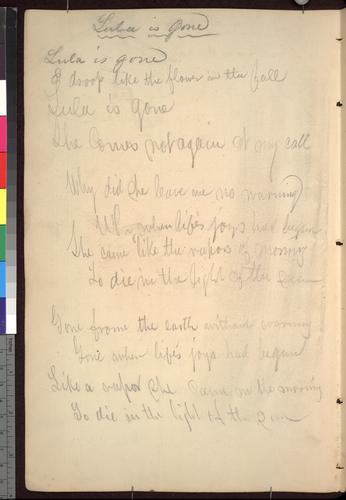 Lula is Gone
Lula is gone
I droop like the flower in the fall
Lula is gone
She Comes not again at my call
Why did she leave me no warning
When life's joys had begun
She came like the vapors of morning
To die in the light of the Sun
Gone frome the earth without warning
Gone when life's joys had begun
Like a vapor She Came in the morning
To die in the light of the Sun